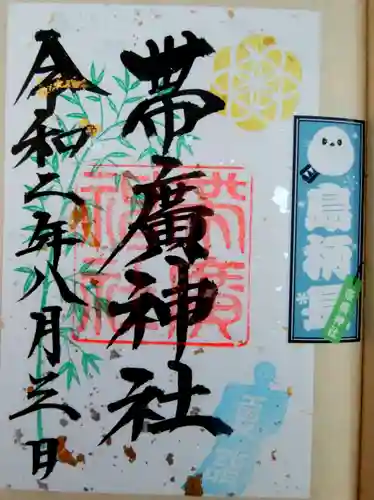 帯廣神社
令和二年八月三日
帯廣神社
島柄長